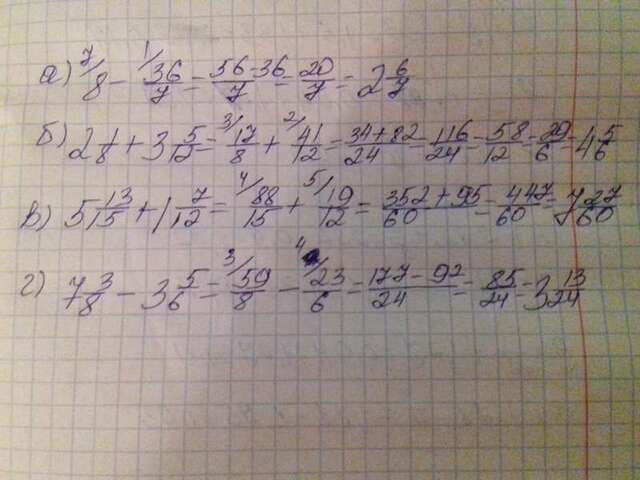 а) 7/8 - 1/36/7 = 56-36/7 = 20/7 = 2 6/7
б) 2 1/8 + 3 5/12 = 3/17/8 + 2/41/12 = 34+82/24 = 116/24 = 58/12 = 29/6 = 4 5/6
в) 5 13/15 + 1 7/12 = 4/88/15 + 5/19/12 = 352+95/60 = 447/60 = 7 27/60
г) 7 3/8 - 3 5/6 = 3/59/8 - 4/23/6 = 177-92/24 = 85/24 = 3 13/24